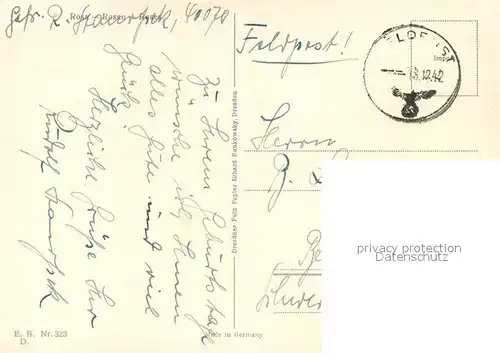 Gefr. R. 40070
Rose - Rosen - Roses
Zu Ihrem Geburtstage
wünsche ich Ihnen
alles Gute und viel
Glück!
Herzliche Grüße Ihr
Rudolf
E. B. Nr. 323
D.
Dresdner Fein Papier Erhard Bunkowsky, Dresden.
Made in Germany
Feldpost!
FELDPOST
.12.42
Herrn
privacy protection
Datenschutz